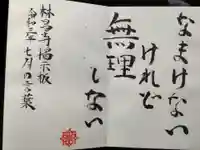 なまけない
けれど
無理
しない
林昌寺掲示板
令和三年七月の言葉